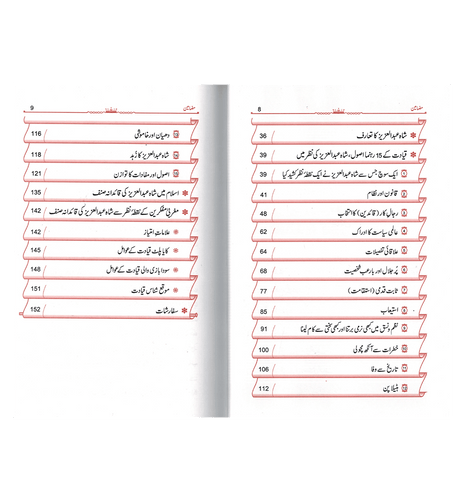 مضامین 8
شاہ عبدالعزیز کا تعارف 36
قیادت کے 15 رہنما اصول، شاہ عبدالعزیز کی نظر میں 39
ایک سوچ جس سے شاہ عبدالعزیز نے ایک نقطۂ نظر کشید کیا 39
قانون اور نظام 41
رجال کار (قائدین) کا انتخاب 48
عالمی سیاست کا ادراک 62
علاقائی تفصیلات 64
پر جلال اور بارعب شخصیت 68
ثابت قدمی (استقامت) 77
استیعاب 85
نظم و نسق میں کبھی نرمی برتنا اور کبھی سختی سے کام لینا 91
خطرات سے آنکھ مچولی 100
تاریخ سے وفا 106
بٹیلا پن 112
مضامین 9
دھیان اور خاموشی 116
شاہ عبدالعزیز کا زہد 118
اصول اور مفادات کا توازن 121
اسلام میں شاہ عبدالعزیز کی قائدانہ صنف 135
مغربی مفکرین کے نقطۂ نظر سے شاہ عبدالعزیز کی قائدانہ صنف 142
علامات امتیاز 142
کایا پلٹ قیادت کے عوامل 145
سودا بازی والی قیادت کے عوامل 148
موقع شناس قیادت 151
سفارشات 152